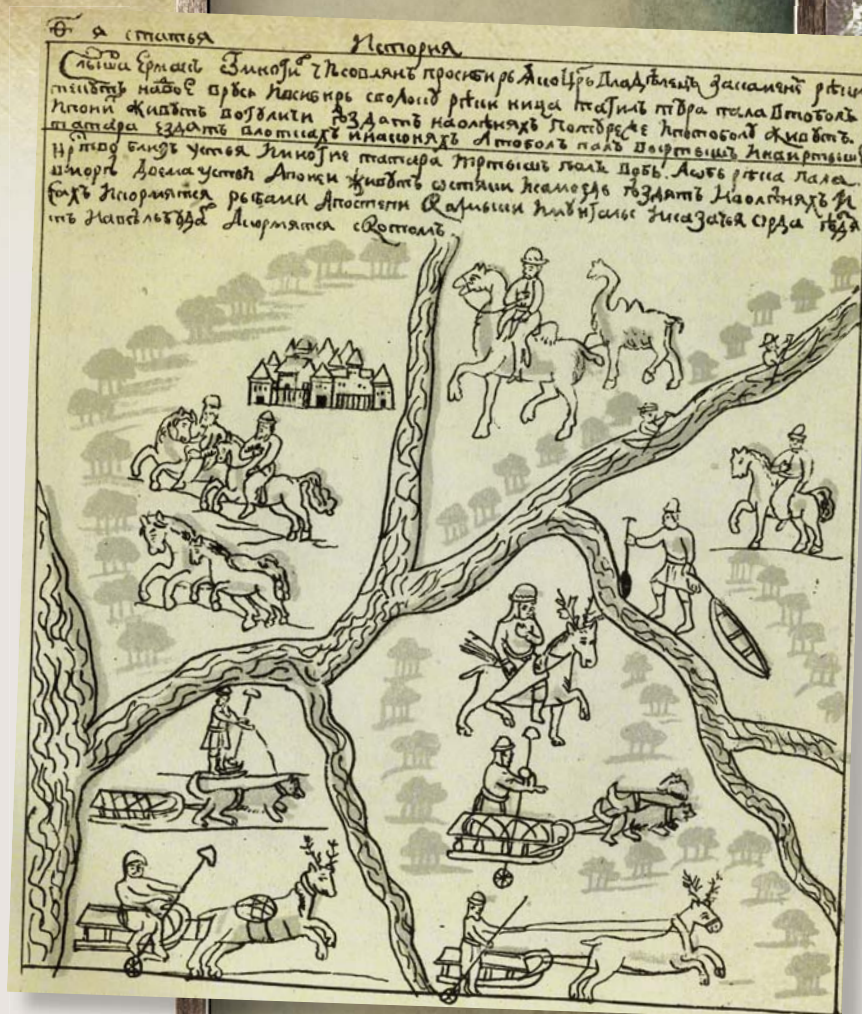 я статья
История
Слыша Ермакъ ѿ многи Чюсовлянъ про Сибирь яко црь владѣлецъ за каменемъ рѣки
текутъ на двое в русь и в сибирь с волоку рѣки ница тагилъ тура пала в тоболъ
и по ним живутъ вогуличи ѣздятъ на оленяхъ по туре же и по тоболу живутъ
татара ездятъ в лотках и на конях а тоболъ палъ в ыртышъ и на иртышѣ
црство близъ устья и многие татара иртышъ палъ в обь а обь рѣка пала
в море двема устьи а по ней живутъ остяки и самоедь ѣздятъ на оленяхъ и
и кормятся рыбами а по степи калмыки и мунгалы и казачья орда ѣздя
тъ на вельбудах а кормятся скотомъ